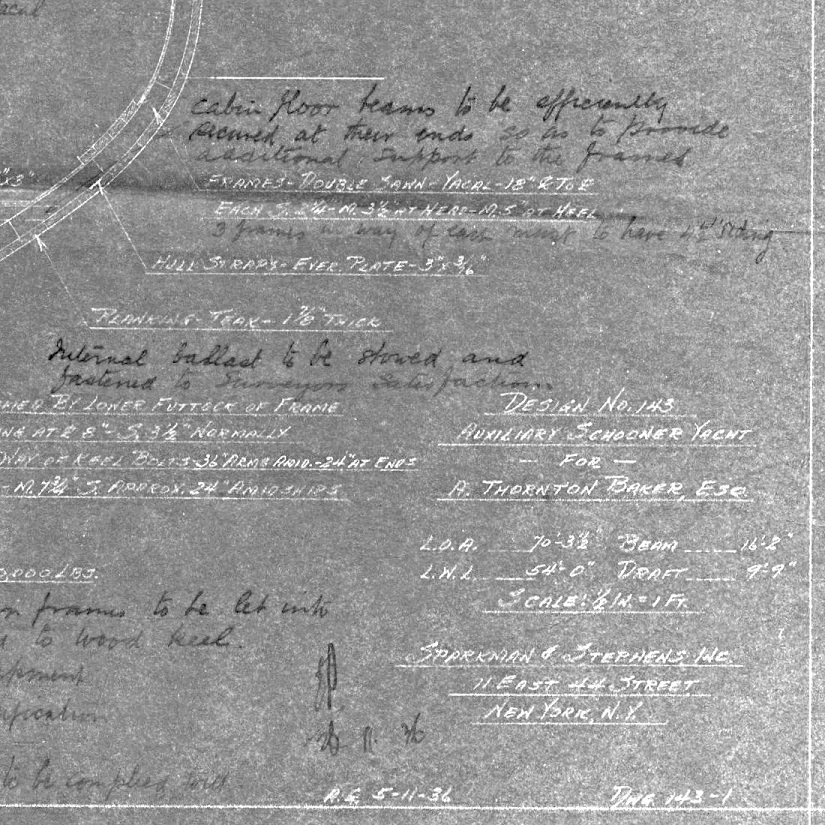 cabin floor beams to be efficiently
secured at their ends so as to provide
additional support to the frames
FRAMES - DOUBLE SAWN - YACAL - 18" ℄ TO ℄
EACH S. 2¼ - M. 3½" AT HERE - M. 5" AT HEEL
3 frames in way of each mast to have siding
STRAPS - EVER. PLATE - 3" x 3/16"
PLANKING - TEAK - 1⅞" THICK
Internal ballast to be stowed and
fastened to Surveyors Satisfaction.
BY LOWER FUTTOCK OF FRAME
AT ℄ 8" - S. 3½" NORMALLY
WAY OF KEEL BOLTS - 36" ARMS AMID. - 24" AT ENDS
M. 7¾" S. APPROX. 24" AMIDSHIPS
DESIGN NO. 143
AUXILIARY SCHOONER YACHT
— FOR —
A. THORNTON BAKER, ESQ.
L.O.A. 70'-3½" BEAM 16'-2"
L.W.L. 54'-0" DRAFT 9'-9"
SCALE: ½ IN. = 1 FT.
000 LBS.
frames to be let into
to wood keel.
SPARKMAN & STEPHENS INC.
11 EAST 44 STREET
NEW YORK, N.Y.
to be complied with
5-11-36
DWG. 143-1